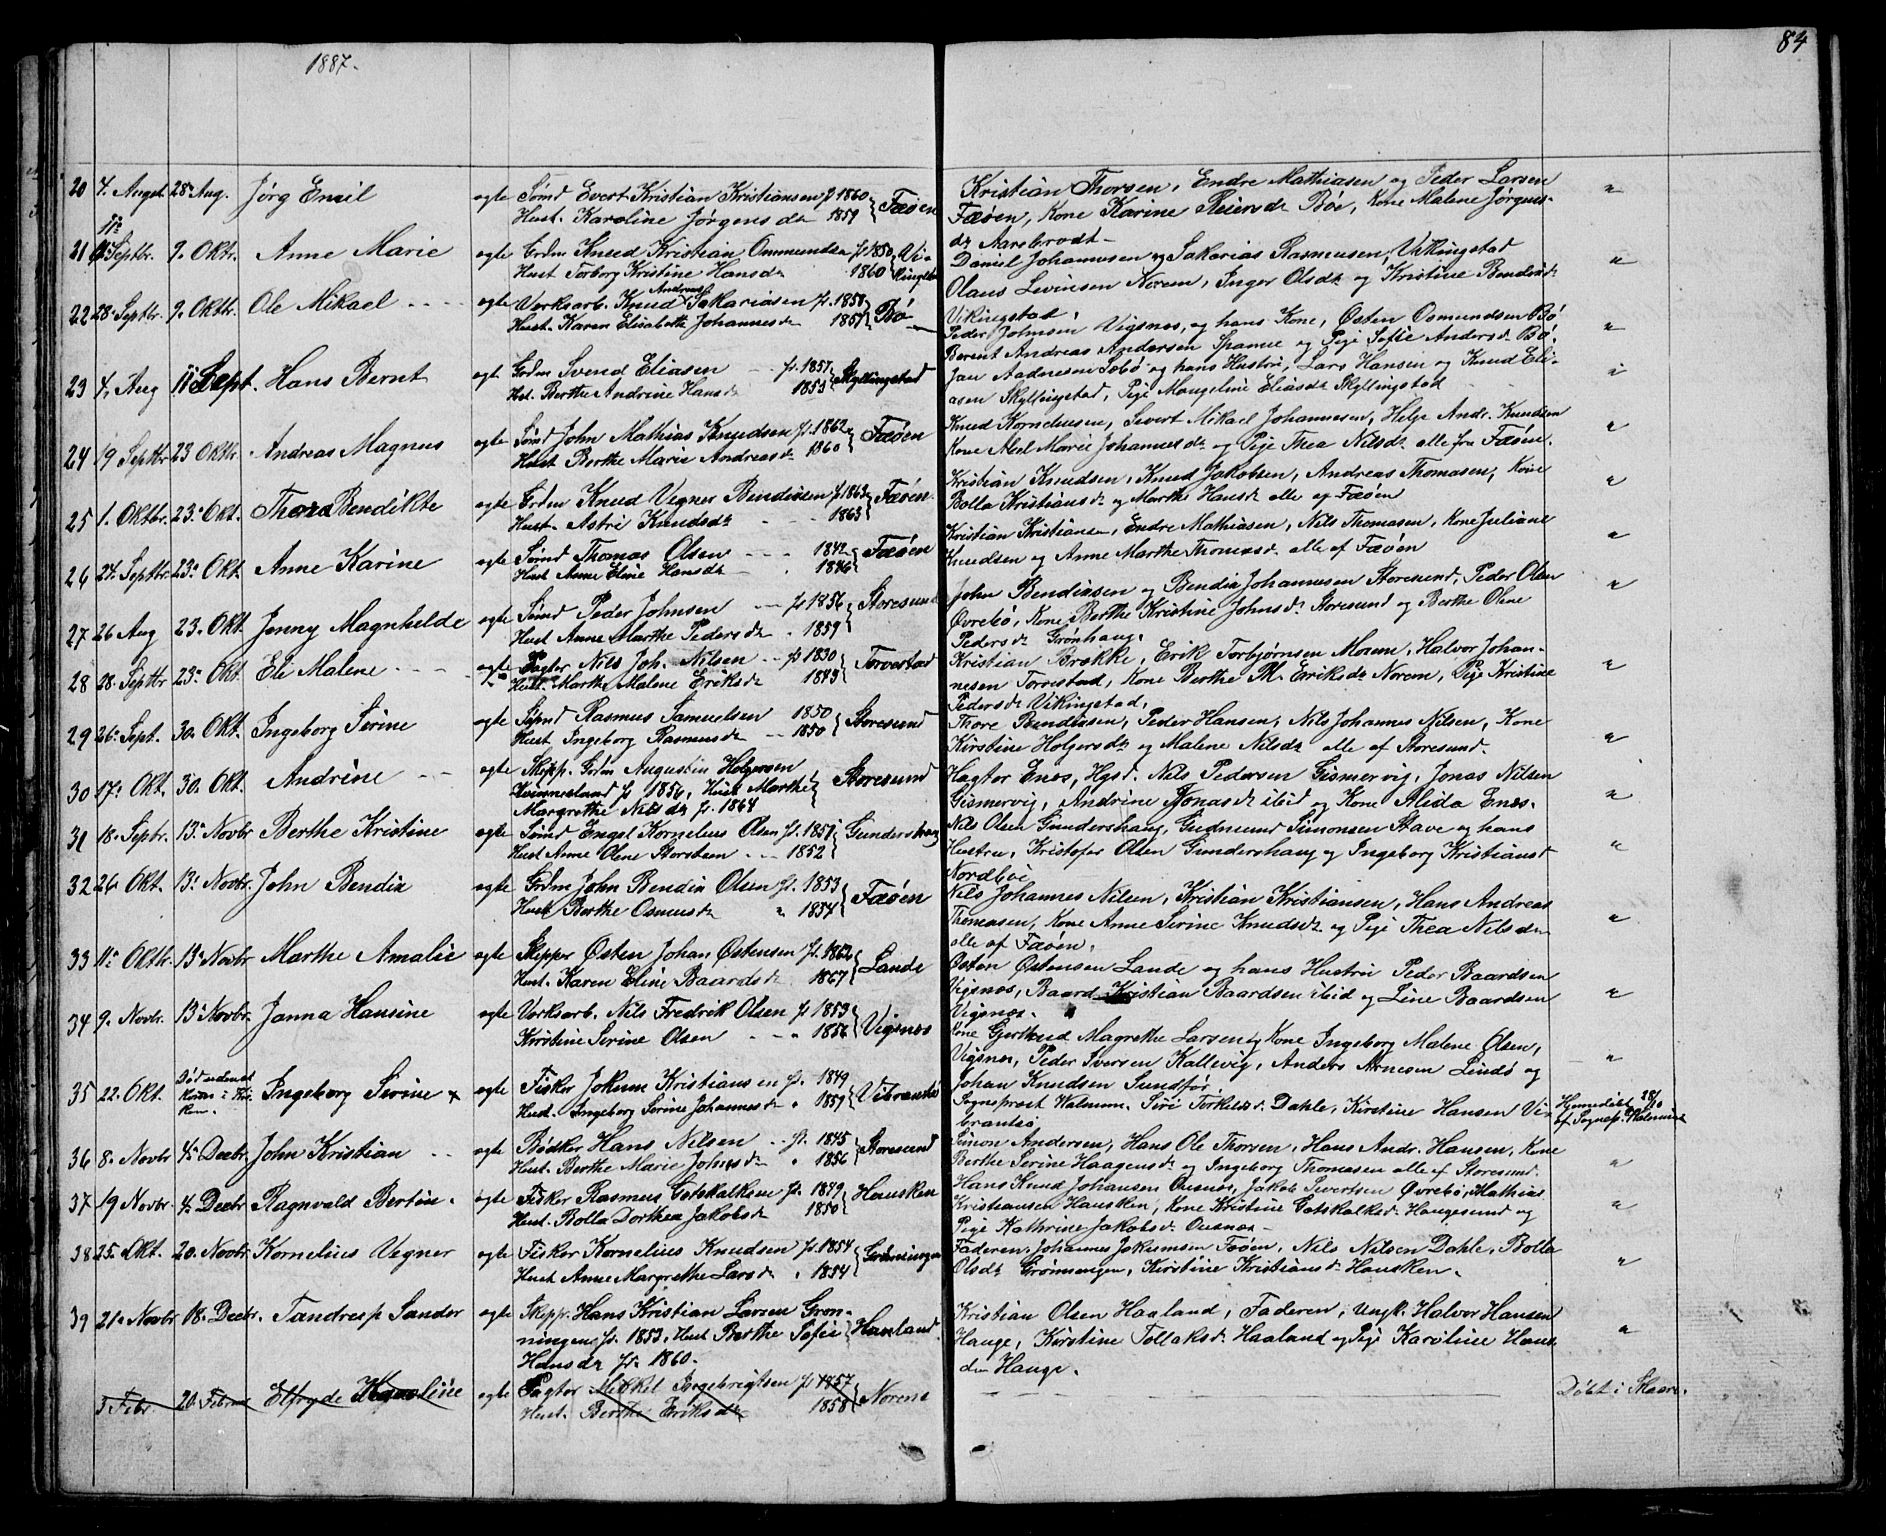 84
1887.
20 4. August 28 Aug. Jörg Emil ægte Sömd Evert Kristian Kristiansen f 1860 Fæøen
Hust. Karoline Jörgensdr 1859
Kristian Thorsen, Endre Mathiasen og Peder Larsen
Fæøen, Kone Karine Reiersdr Bøe, Kone Malene Jörgens-
dr Aarebrodt
21 Septbr. 9. Oktr. Anne Marie ægte Grdm Knud Kristian Ommundsen f. 1850 Vi-
Hust Torborg Kristine Hansdr 1860 kingstad
Daniel Johannesen og Sakarias Rasmussen, Vikingstad
Olaus Levinsen Norem, Inger Olsdr og Kristine Bendixdr
Vikingstad.
22 28. Septbr. 9. Oktbr. Ole Mikael ægte Værksarb. Knud Andreas Sakariasen f. 1858 Bö
Hust. Karen Elisabeth Johannesdr 1857
Peder Johnsen Vigsnes, og hans Kone, Østen Osmundsen Bö
Berent Andreas Andersen Spanne og Pige Sofie Andersdr Bö.
23 4. Aug 11 Sept. Hans Bernt ægt Grdm Svend Eliasen f. 1857 Skyllingstad
Hst. Berthe Andrine Hansdr 1853
Jan Aadnesen Sæbö og hans Hustru, Lars Hansen og Knud Eli-
asen Skyllingstad, Pige Mangeline Eliasdr Skyllingstad
24 19 Septbr 23 Oktbr. Andreas Magnus ægte Sömd John Mathias Knudsen f. 1862 Fæøen
Hust Berthe Marie Andreasdr 1860
Knud Kornelusen, Sivert Mikael Johannesen, Helge Andr. Knudsen
Kone Abel Marie Johannesdr og Pige Thea Nilsdr alle fra Fæøen.
25 1. Oktbr. 23. Okt. Thora Bendikte ægte Grdm Knud Vegner Bendixen f. 1863 Fæøen
Hust. Astri Knudsdr 1863
Kristian Knudsen, Knud Jakobsen, Andreas Thomasen, Kone
Bolla Kristiansdr og Marthe Hansdr alle af Fæøen
26 24. Septbr 23. Okt. Anne Karine ægte Sömd Thomas Olsen 1842 Fæøen
Hust Anne Eline Hansdr 1846
Kristian Kristiansen, Endre Mathiasen, Nils Thomasen, Kone Juliane
Knudsen og Anne Marthe Thomasdr alle af Fæøen
27 26 Aug 23. Okt. Jenny Magnhelde ægte Sömd Peder Johnsen f. 1856 Storesund
Hust Anne Marthe Pedersdr 1859
John Bendixen og Bendix Johannesen Storesund, Peder Olsen
Øvrebö, Kone Berthe Kristine Johnsdr Storesund og Berthe Oline
Pedersdr Grønhaug.
28 28. Septbr 23. Okt. Eli Malene Pagter Nils Joh. Nilsen f. 1830 Torvestad
Hust. Marthe Malene Eriksdr 1843
Kristian Brække, Erik Torbjörnsen Norem, Halvor Johan-
nesen Torvestad, Kone Berthe M. Eriksdr Norem, Pige Kristine
Pedersdr Vikingstad.
29 26. Sept. 30. Okt. Ingeborg Serine ægte Sömd Rasmus Samuelsen 1850 Storesund
Hust Ingeborg Rasmusdr 1850
Thore Bendixsen, Peder Hansen, Nils Johannes Nilsen, Kone
Kirstine Holgersdr og Malene Nilsdr alle af Storesund
30 17. Okt. 30. Okt. Andrine ægte Skipp. Grdm Augustin Holgersen Storesund
Kvinnesland f. 1856, Hust Marthe
Margrethe Nilsdr f. 1864
Hagtor Enes, Hgsd. Nils Pedersen Gismervig, Jonas Nilsen
Gismervig, Andrine Jonasdr ibid og Kone Alida Enes.
31 18. Septr. 13. Novbr Berthe Kristine ægte Sömd Engel Kornelius Olsen f. 1851 Gundershaug
Hust Anne Oline Storsteen 1852
Nils Olsen Gundershaug, Gudmund Simonsen Stave og hans
Hustru, Kristofer Olsen Gundershaug og Ingeborg Kristiansd
Nordbö
32 26 Okt. 13. Novbr. John Bendix ægte Grdm John Bendix Olsen f. 1853 Fæøen
Hust Berthe Osmusdr 1854
Nils Johannes Nilsen, Kristian Kristiansen, Hans Andreas
Thomasen, Kone Anne Serine Knudsdr og Pige Thea Nilsdr
alle af Fæøen.
33 11. Oktbr. 13. Novbr Marthe Amalie ægte Skipper Østen Johan Østensen f. 1862 Lande
Hust. Karen Eline Baardsdr 1867
Østen Østensen Lande og hans Hustru Peder Baardsen
Vigsnes, Baard Kristian Baardsen ibid og Line Baardsen
Vigsnes.
34 9. Novbr. 13. Novbr. Janna Hansine ægte Værksarb. Nils Fredrik Olsen f. 1853 Vigsnes
Kirstine Serine Olsen 1856
Kone Gjertrud Magrethe Larsen, Kone Ingeborg Malene Olsen,
Vigsnes, Peder Iversen Kallevig, Anders Arnesen Lindö og
Johan Knudsen Sundför.
35 22. Okt. Död udenat Ingeborg Serine x ægte Fisker Jokum Kristiansen f. 1849 Vibrandsö
Hust. Ingeborg Serine Johannesdr 1857
Sogneprest Walnum. Siri Torkildsdr Dahle, Kirstine Hansen Vi-
brandsö
Hjemmedöbt 28/10
af Sognep. Walnum
36 8. Novbr 4. Decbr. John Kristian ægte Bödker Hans Nilsen f. 1845 Storesund
Hust. Berthe Marie Johnsdr 1856
Simon Andersen, Hans Ole Thorsen, Hans Andr. Hansen, Kone
Berthe Serine Haagensdr og Ingeborg Thomasen alle af Storesund.
37 19 Novbr. 4. Decbr Ragnvald Bertin ægte Fisker Rasmus Gotskalksen f. 1849 Hausken
Hust. Bolla Dorthea Jakobsdr 1850
Hans Knud Johansen Ousnes, Jakob Sivertsen Øvrebö, Mathias
Kristiansen Hausken, Kone Kristine Gotskalksdr Haugesund og
Pige Kathrine Jakobsdr Ousnes
38 25. Okt. 20. Novbr. Kornelius Vegner ægte Fisker Kornelius Knudsen f. 1854 Grönningen
Hust Anne Margrethe Larsdr 1854
Faderen, Johannes Jokumsen Fæøen, Nils Nilsen Dahle, Bolla
Olsdr Grönningen, Kirstine Kristiansdr Hausken.
39 21. Novbr 18. Decbr. Tandresp Sander ægte Skipp. Hans Kristian Larsen Grøn- Haaland
ningen f. 1853, Hust Berthe Sofie
Hansdr f. 1860.
Kristian Olsen Haaland, Faderen, Ungk. Halvor Hansen
Hauge, Kirstine Tollaksdr Haaland og Pige Karoline Hans-
dr Hauge.
5 Febr. 20 Februar Elfryde Karoline ægte Pagter Mikkel Ingebrigtsen f. 1857 Norem
Hust. Berthe Eriksdr 1858
Döbt i Skaare.